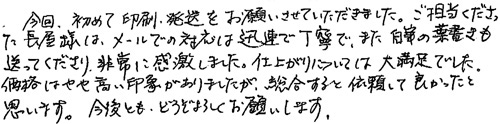 ・今回、初めて印刷・発送をお願いさせていただきました。ご担当くださっ
た長屋様は、メールでの対応は迅速で丁寧で、また自筆の葉書きも
送ってくださり、非常に感激しました。仕上がりについては大満足でした。
価格はやや高い印象がありましたが、総合すると依頼して良かったと
思います。今後とも、どうぞよろしくお願いします。